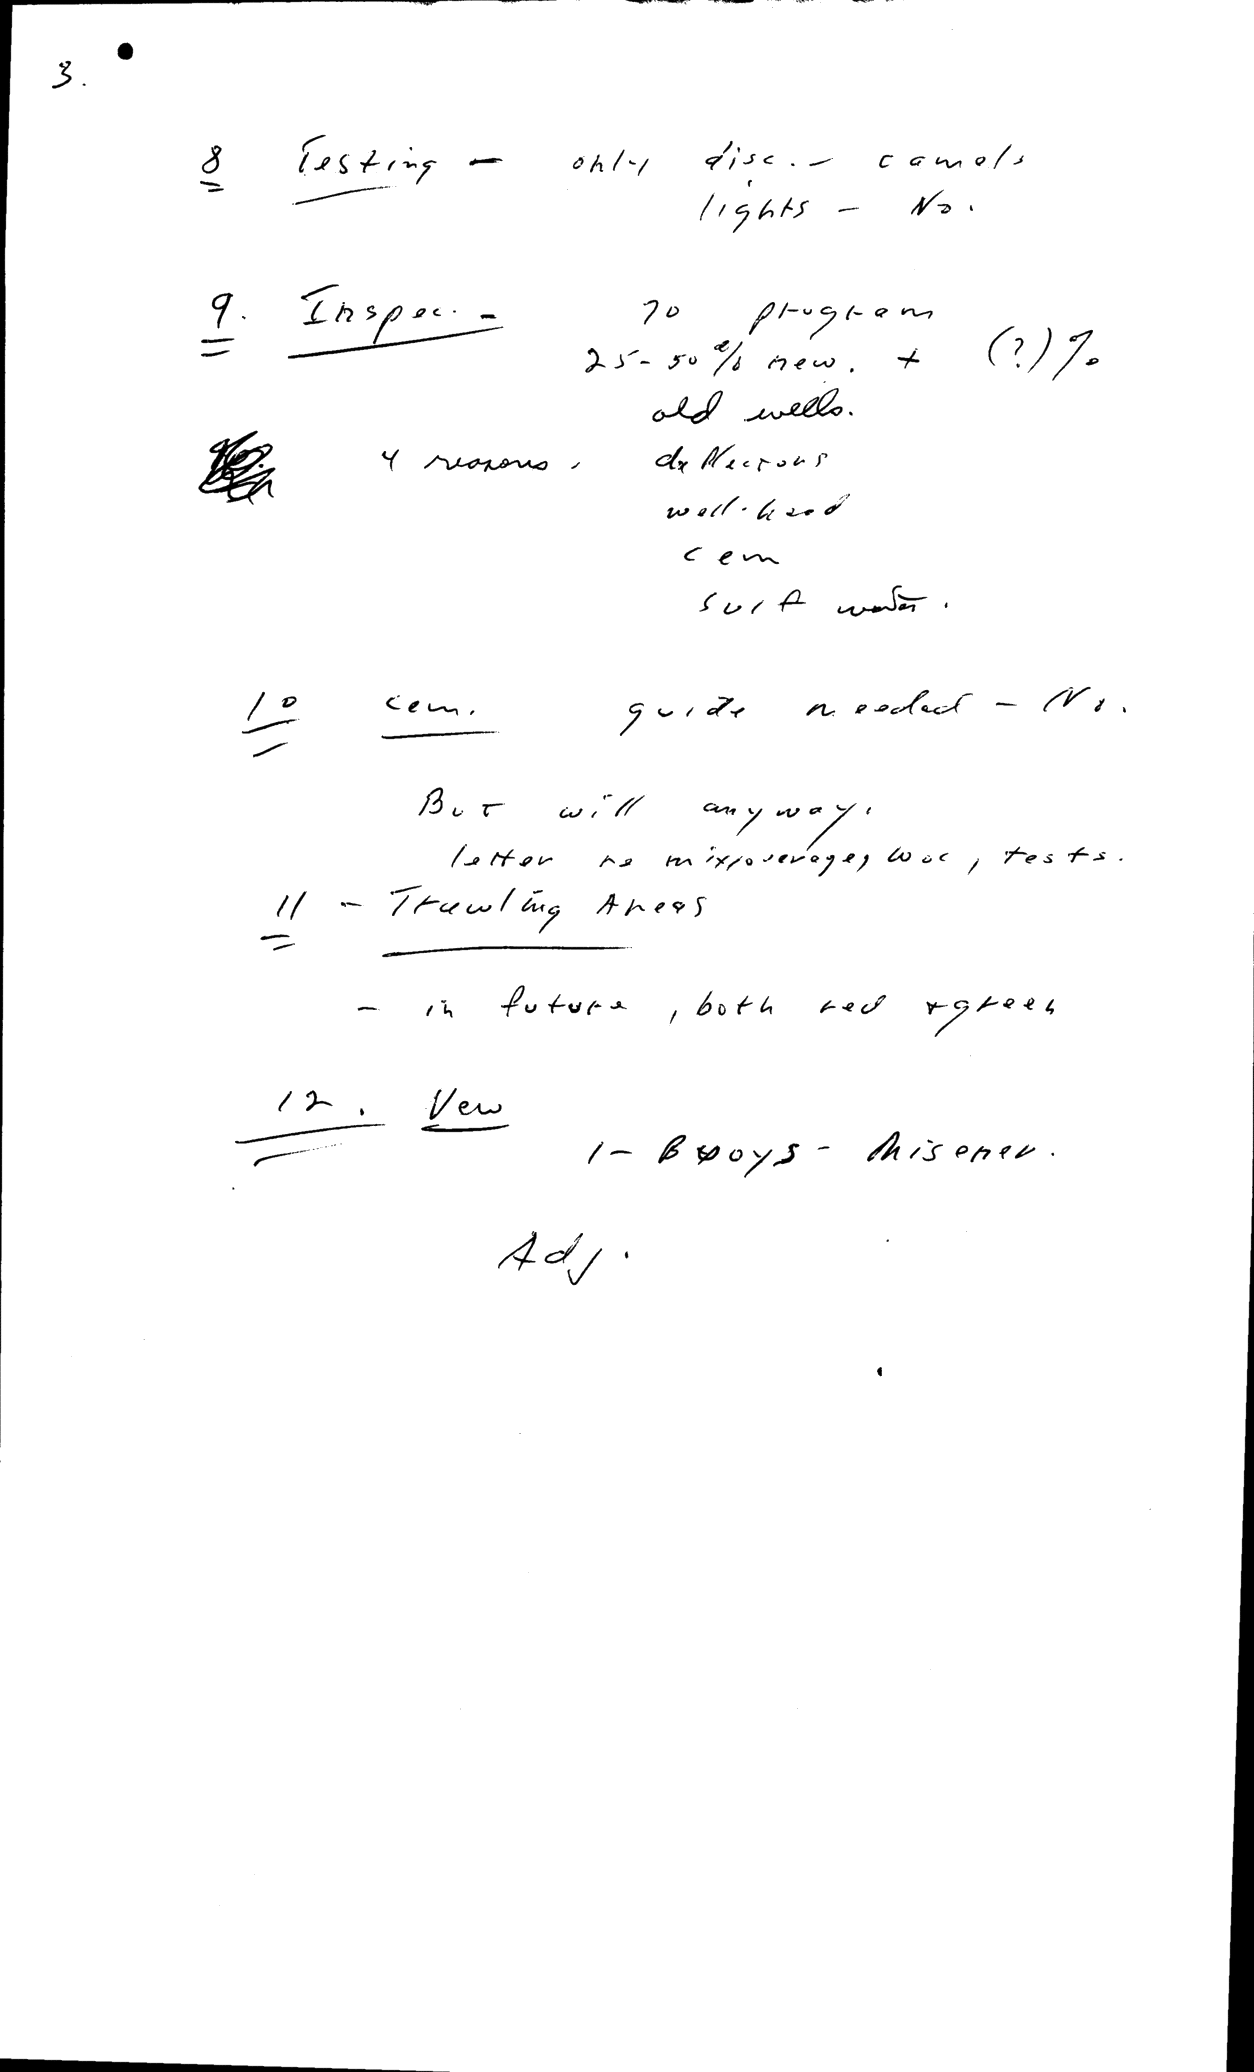 3.
8 Testing - only disc. - camels
lights - No.
9. Inspec. - 70 program
25-50% new. + (?)%
old wells.
4 reasons. deflections
well-head
cem
surf water.
10 cem. guide needed - No.
But will anyway.
letter re mix, overages, woc, tests.
11 - Trawling Areas
- in future, both red + green
12. New
1- Buoys - Misener.
Adj.